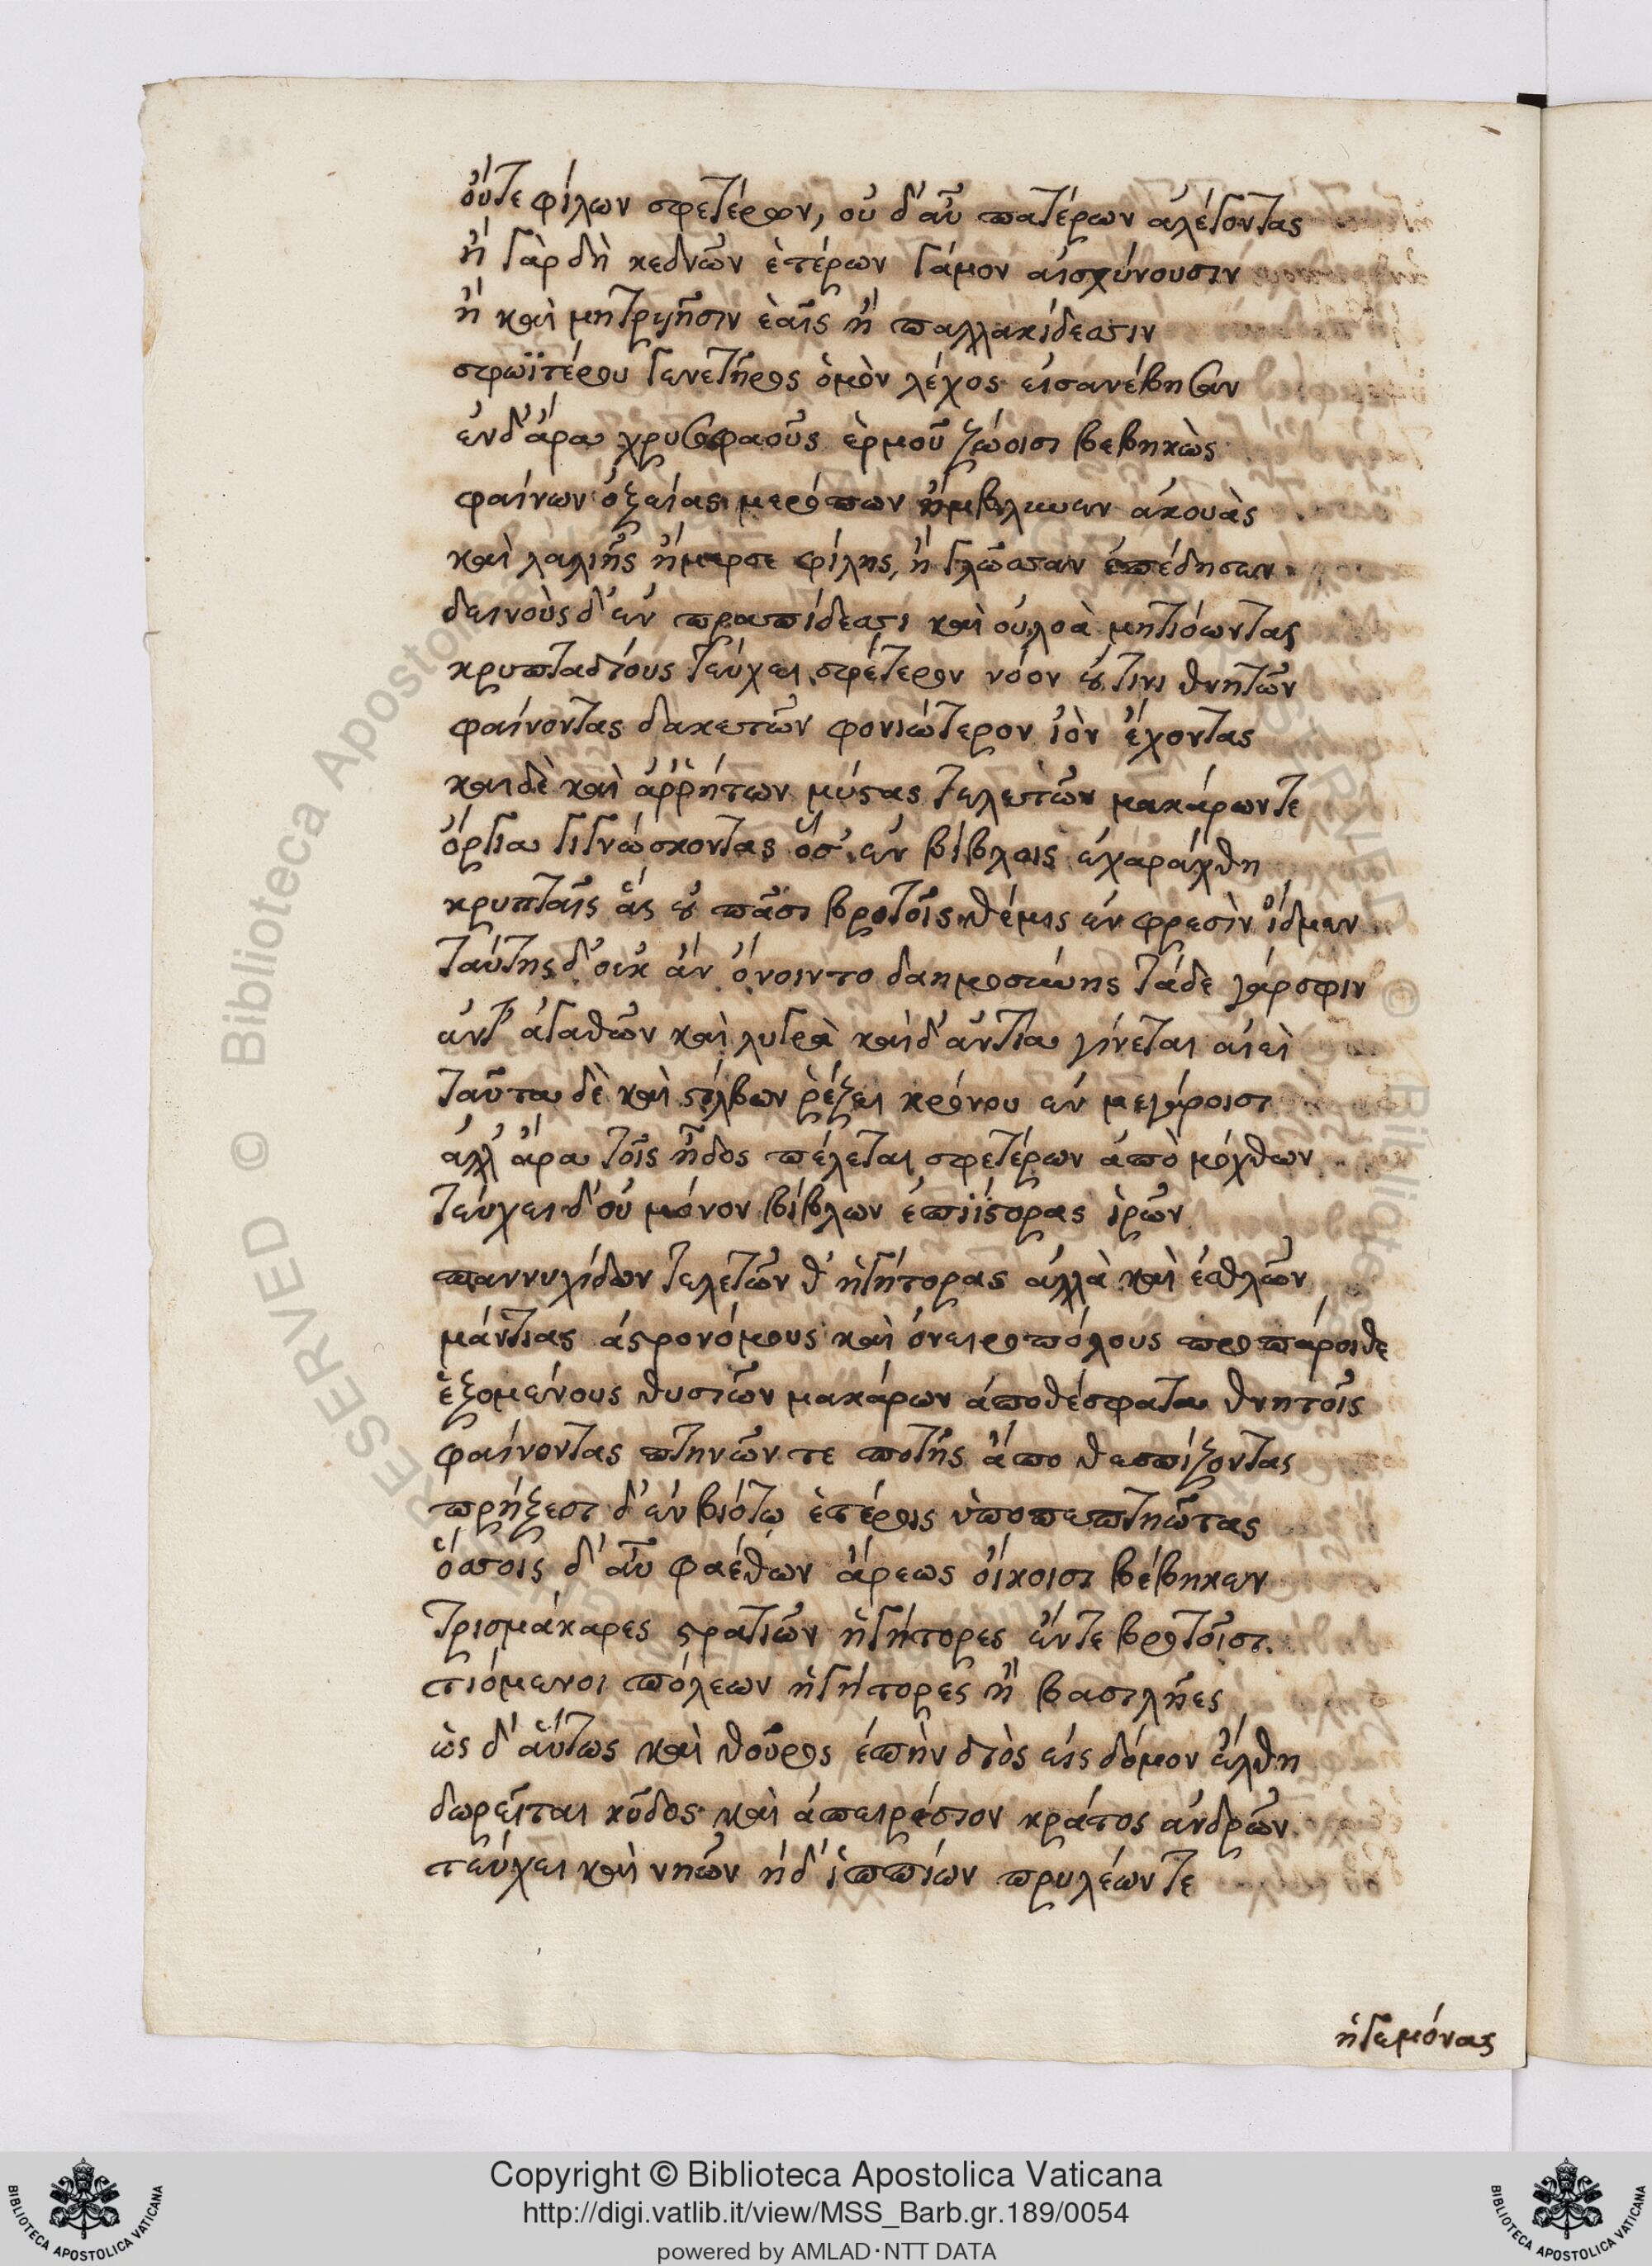 οὔτε φίλων σφετέρων, οὐ δ' αὖ πατέρων ἀλέγοντας
ἢ γὰρ δὴ κεδνῶν ἑτέρων γάμον αἰσχύνουσιν
ἢ καὶ μητρυῆσιν ἑαῖς ἢ παλλακίδεσσιν
σφωϊτέρου γενετῆρος ὁμὸν λέχος εἰσανέβησαν
ἐν δ' ἄρα χρυσοφαοῦς ἑρμοῦ ζώοισι βεβηκὼς
φαίνων ὀξείας μερόπων ἤμβλυνεν ἀκουὰς
καὶ λαλιῆς ἤμερσε φίλης, ἢ γλῶσσαν ἐπέδησεν
δεινοὺς δ' ἐν πραπίδεσσι καὶ οὐλοὰ μητιόωντας
κρυπταδίους τεύχει σφέτερον νόον οὔ τινι θνητῶν
φαίνοντας δακετῶν φονιώτερον ἰὸν ἔχοντας
και δὲ καὶ ἀῤῥήτων μύστας τελετῶν μακάρων τε
ὄργια γιγνώσκοντας ὅσ' ἐν βίβλοις ἐχαράχθη
κρυπταῖς ἃς οὐ πᾶσι βροτοῖς θέμις ἐν φρεσὶν ἴδμεν
ταύτης δ' οὐκ ἂν ὄνοιντο δαημοσύνης τάδε γάρ σφιν
ἀντ' ἀγαθῶν καὶ λυγρὰ καὶ δ' ἄντια γίνεται αἰεὶ
ταῦτα δὲ καὶ στίλβων ῥέζει κρόνου ἐν μεγάροισι
ἀλλ' ἄρα τοῖς ἦδος πέλεται σφετέρων ἀπὸ μόχθων
τεύχει δ' οὐ μόνον βίβλων ἐπιΐστορας ἱρῶν
παννυχίδων τελετῶν θ' ἡγήτορας ἀλλὰ καὶ ἐσθλῶν
μάντιας ἀστρονόμους καὶ ὀνειροπόλους προπάροιθε
ἑζομένους θυσιῶν μακάρων ἀποθέσφατα θνητοῖς
φαίνοντας πτηνῶν τε ποτῆς ἄπο θεσπίζοντας
πρήξεσι δ' ἐν βιότω ἑτέροις ὑποπεπτηῶτας
ὅσσοις δ' αὖ φαέθων ἄρεως οἴκοισι βέβηκεν
τρισμάκαρες στρατιῶν ἡγήτορες ἔν τε βροτοῖσι
τιόμενοι πόλεων ἡγήτορες ἢ βασιλῆες
ὡς δ' αὔτως καὶ θοῦρος ἐπὴν διὸς εἰς δόμον ἔλθη
δωρεῖται κῦδος καὶ ἀπειρέσιον κράτος ἀνδρῶν
τεύχει καὶ νηῶν ἠδ' ἱππίων πρυλέων τε
ἡγεμόνας
Copyright © Biblioteca Apostolica Vaticana
http://digi.vatlib.it/view/MSS_Barb.gr.189/0054
powered by AMLAD·NTT DATA